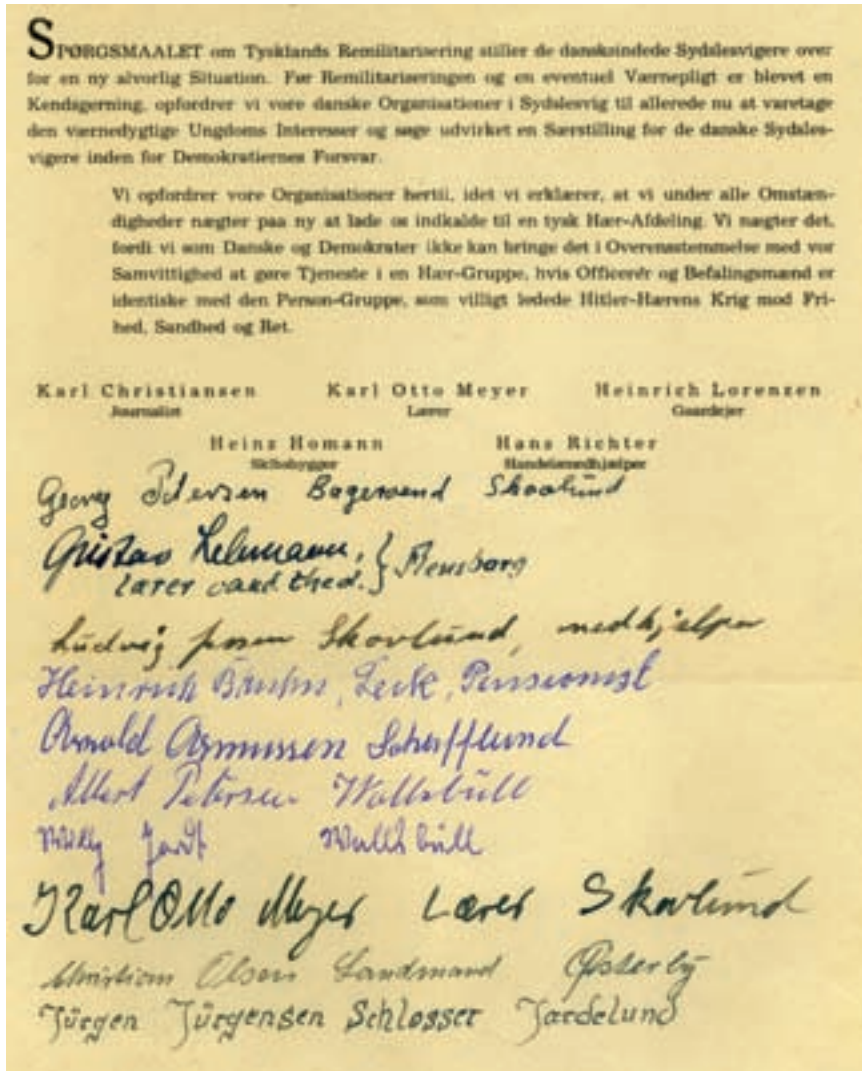 SPØRGSMAALET om Tysklands Remilitarisering stiller de dansksindede Sydslesvigere over
for en ny alvorlig Situation. Før Remilitariseringen og en eventuel Værnepligt er blevet en
Kendsgerning, opfordrer vi vore danske Organisationer i Sydslesvig til allerede nu at varetage
den værnedygtige Ungdoms Interesser og søge udvirket en Særstilling for de danske Sydsles-
vigere inden for Demokratiernes Forsvar.
Vi opfordrer vore Organisationer hertil, idet vi erklærer, at vi under alle Omstæn-
digheder nægter paa ny at lade os indkalde til en tysk Hær-Afdeling. Vi nægter det,
fordi vi som Danske og Demokrater ikke kan bringe det i Overensstemmelse med vor
Samvittighed at gøre Tjeneste i en Hær-Gruppe, hvis Officerer og Befalingsmænd er
identiske med den Person-Gruppe, som villigt ledede Hitler-Hærens Krig mod Fri-
hed, Sandhed og Ret.
Karl Christiansen Karl Otto Meyer Heinrich Lorenzen
Journalist Lærer Gaardejer
Heinz Homann Hans Richter
Skibsbygger Handelsmedhjælper
Georg Petersen Bagersvend Skovlund
Gustav Lehmann, } Flensborg
lærer cand. theol.
Ludvig Skovlund, medhjelper
Heinrich Bruhn, Leck, Pensionist
Arnold Asmussen Schafflund
Albert Petersen Wallsbüll
Willy Wallsbüll
Karl Otto Meyer Lærer Skovlund
Christian Olsen Landmand Østerby
Jürgen Jürgensen Schlosser Jardelund